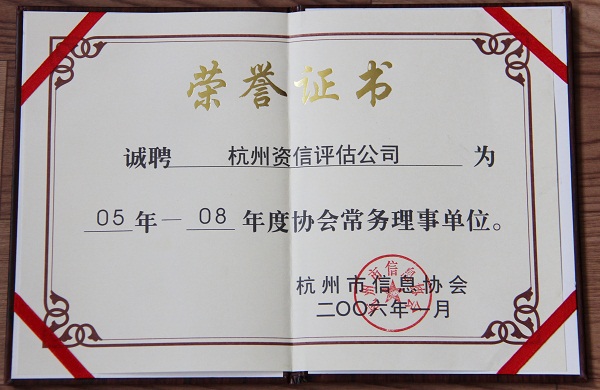 荣誉证书
诚聘 杭州资信评估公司 为
05年—08年度协会常务理事单位。
杭州市信息协会
二〇〇六年一月
杭州市信息协会